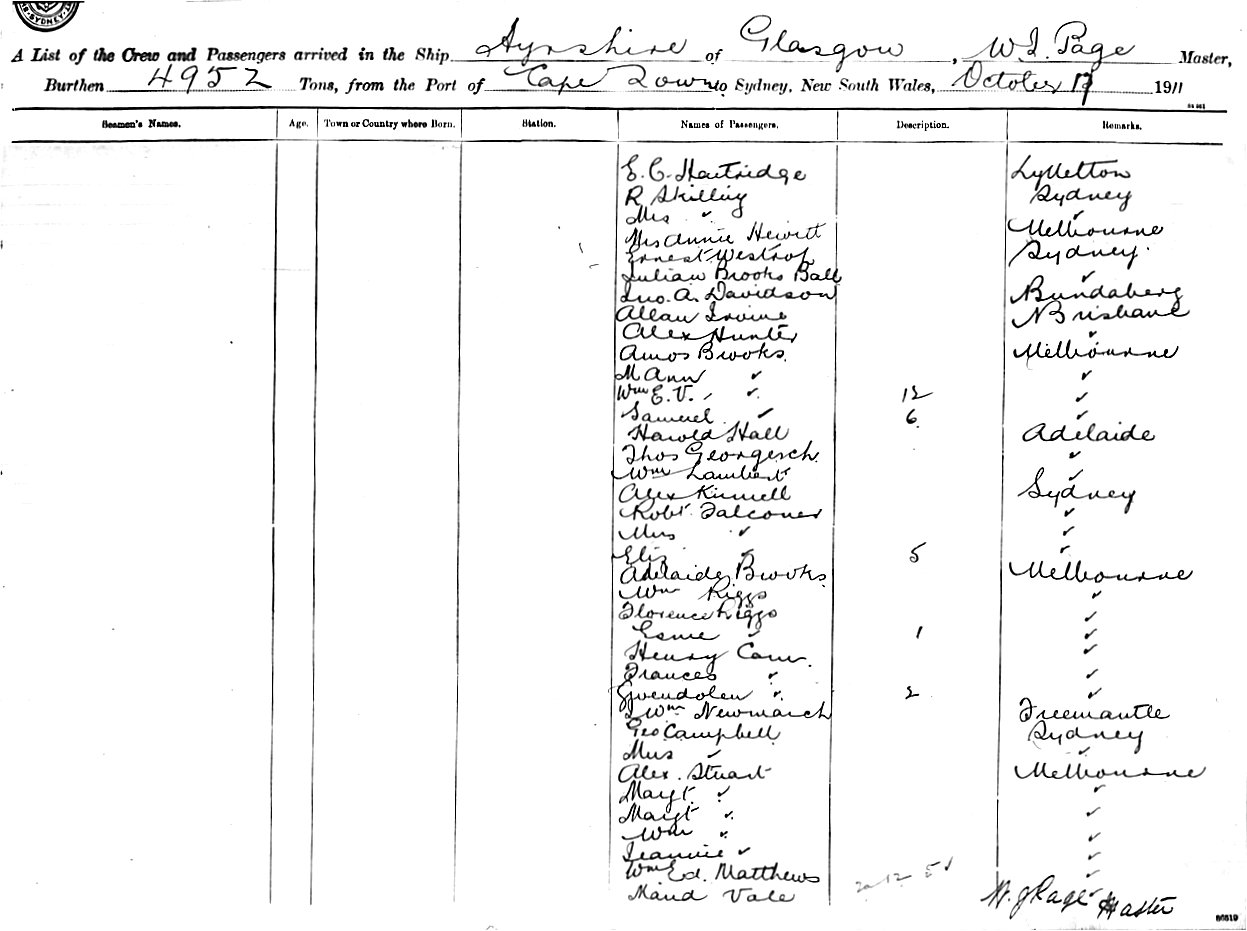 SYDNEY
A List of the Crew and Passengers arrived in the Ship Ayrshire of Glasgow, W. J. Page Master,
Burthen 4952 Tons, from the Port of Cape Town to Sydney, New South Wales, October 17 1911
Seamen's Names. Age. Town or Country where Born. Station. Names of Passengers. Description. Remarks.
E. C. Hartridge Lyttelton
R Skilling Sydney
Mrs " ✓
Mrs Annie Hewitt Melbourne
Ernest Westrop Sydney.
Julian Brooks Ball ✓
Jno. A. Davidson Bundaberg
Allan Irvine N Brisbane
Alex Hunter ✓
Amos Brooks. Melbourne
M Ann ✓ ✓
Wm E. V. ✓ 12 ✓
Samuel ✓ 6 ✓
Harold Hall Adelaide
Thos Georgesch ✓
Wm Lambert ✓
Alex Kinnell Sydney
Robt. Falconer ✓
Mrs ✓ ✓
Eliz ✓ 5 ✓
Adelaide Brooks. Melbourne
Wm Riggs ✓
Florence Riggs ✓
Esme ✓ 1 ✓
Henry Carr. ✓
Frances ✓ ✓
Gwendolen ✓ 2 ✓
Wm Newmarch Freemantle
Geo Campbell Sydney
Mrs ✓ ✓
Alex. Stuart Melbourne
Margt. ✓ ✓
Margt ✓ ✓
Wm ✓ ✓
Jeannie ✓ ✓
Wm Ed. Matthews ✓
Maud Vale ✓
W. J Page Master
86519